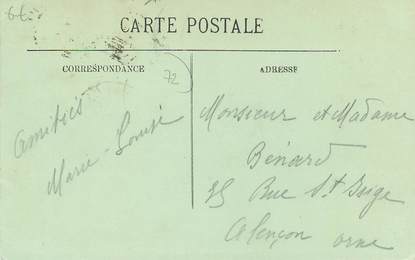 66
CARTE POSTALE
CORRESPONDANCE
72
ADRESSE
Amitiés
Marie-Louise
Monsieur et Madame
Bénard
Rue St
Alençon Orne